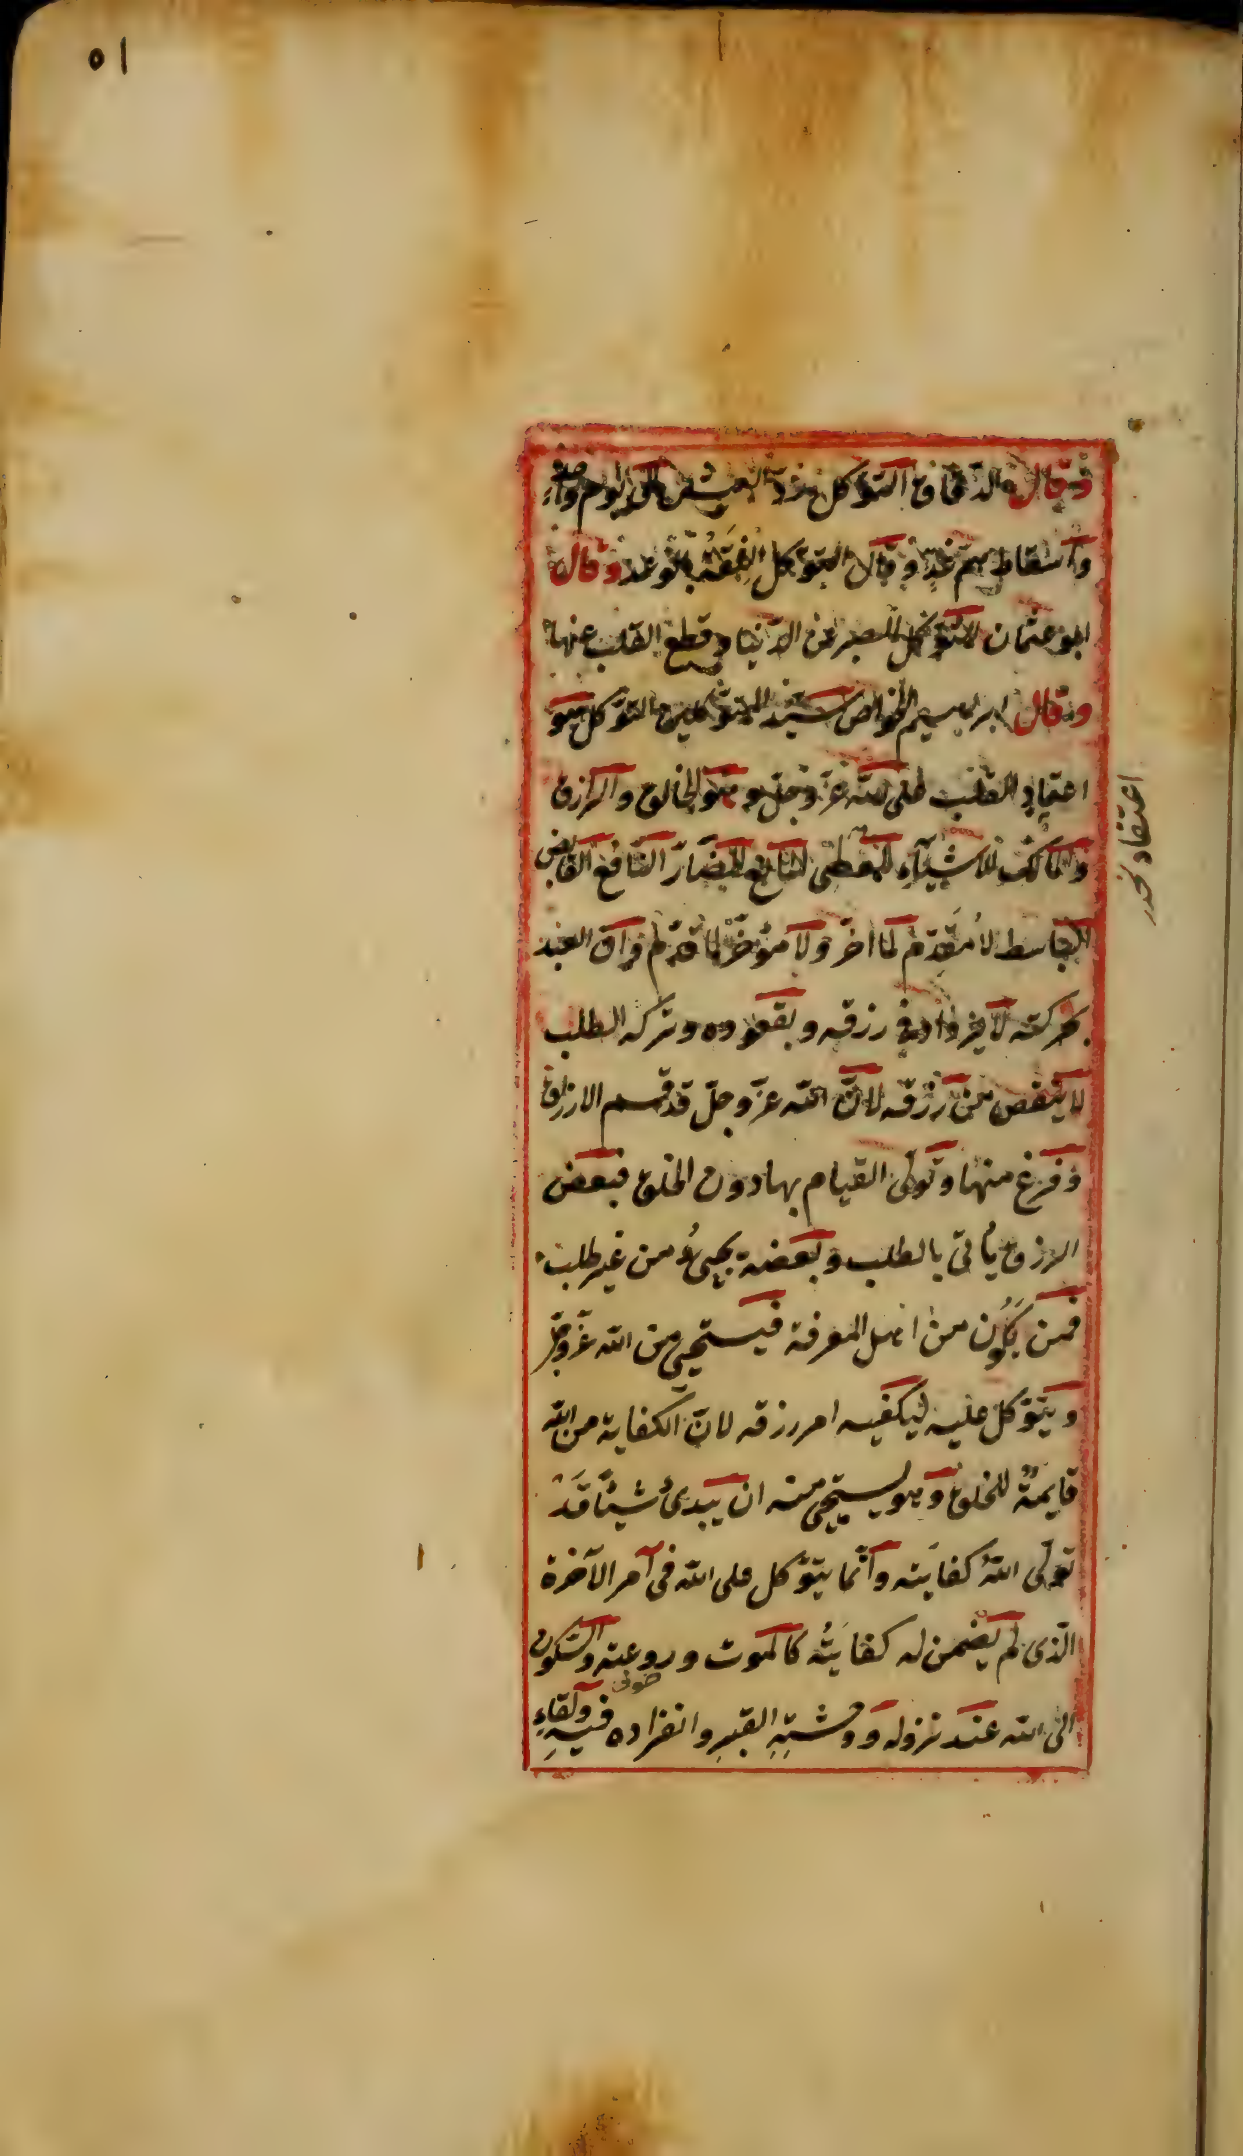 ٥١
وقال الدقاق التوكل رد العيش الى يوم واحد
واسقاط هم غد وقال التوكل الثقة بالوعد وقال
ابو عثمان التوكل الصبر عن الدنيا وقطع القلب عنها
وقال ابراهيم الخواص سيد المتوكلين التوكل هو
اعتماد القلب على الله عزّ وجلّ وهو الخالق والرازق
والمالك للاشياء المعطى المانع الضارّ النافع القابض
الباسط لا مقدّم لما اخّر ولا مؤخّر لما قدّم العبد
بحركته لا يزداد في رزقه وبقعوده وتركه الطلب
لا ينقص من رزقه لانّ الله عزّ وجلّ قد قسم الارزاق
وفرغ منها وتولّى القيام بها دون الخلق فبعض
الرزق يأتى بالطلب وبعضه يجىءُ من غير طلب
فمن يكون من اهل المعرفة فيستحيى من الله عزّ وجلّ
ويتوّكل عليه ليكفيه امر رزقه لانّ الكفاية من الله
قايمةٌ للخلق وهو يستحيى منه ان يبدئ شيئًا قَدْ
تولّى اللهُ كفايته وانّما يتوّكل على الله فى امر الآخرة
الّذى لم يضمن له كفايتُه كالموت وروعته والسّكون
الى الله عند نزوله ووحشةِ القبرِ وانفراده فيه ولقاءِ
اعتقاد